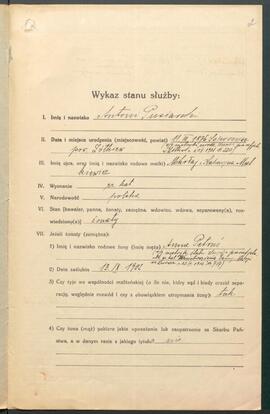 Wykaz stanu służby:
I. Imię i nazwisko Antoni
II. Data i miejsce urodzenia (miejscowość, powiat)
pow. Żółkiew
III. Imię ojca, oraz imię i nazwisko rodowe matki Mikołaj, Katarzyna
IV. Wyznanie kat
V. Narodowość polska
VI. Stan (kawaler, panna, żonaty, zamężna, wdowiec, wdowa, separowany(a), roz-
wiedziony(a)) żonaty
VII. Jeżeli żonaty (zamężna):
1) Imię i nazwisko rodowe żony (imię męża) Anna
2) Data zaślubin
3) Czy żyje we wspólności małżeńskiej (o ile nie, który sąd i kiedy orzekł sepa-
rację, względnie rozwód i czy z obowiązkiem utrzymania żony) tak
4) Czy żona (mąż) pobiera jakie uposażenie lub zaopatrzenie ze Skarbu Pań-
stwa, a w danym razie z jakiego tytułu? nie